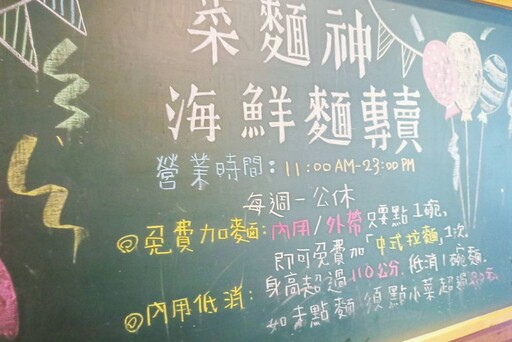 菜麵神
海鮮麵專賣
營業時間:11:00AM-23:00PM
每週一公休
@免費加麵:內用/外帶只要點1碗,
即可免費加「中式拉麵」1次
@內用低消:身高超過110公分,低消1碗麵.
如未點麵須點小菜超過